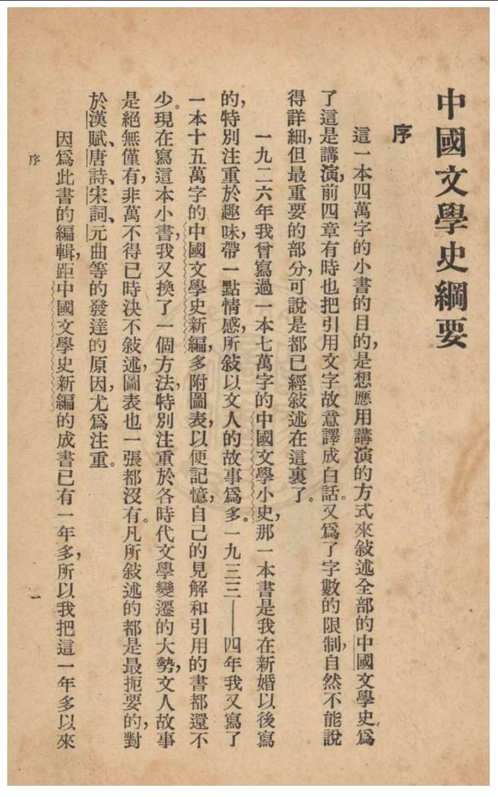 中國文學史綱要
序
這一本四萬字的小書的目的，是想應用講演的方式來敍述全部的中國文學史。爲
了這是講演，前四章有時也把引用文字故意譯成白話。又爲了字數的限制，自然不能說
得詳細，但最重要的部分，可說是都已經敍述在這裏了。
一九二六年我曾寫過一本七萬字的中國文學小史，那一本書是我在新婚以後寫
的，特別注重於趣味，帶一點情感，所敍以文人的故事爲多。一九三三——四年我又寫了
一本十五萬字的中國文學史新編，多附圖表，以便記憶，自己的見解和引用的書都還不
少。現在寫這本小書，我又換了一個方法，特別注重於各時代文學變遷的大勢，文人故事
是絕無僅有，非萬不得已時決不敍述，圖表也一張都沒有。凡所敍述的都是最扼要的，對
於漢賦、唐詩、宋詞、元曲等的發達的原因，尤爲注重。
因爲此書的編輯，距中國文學史新編的成書已有一年多，所以我把這一年多以來
序
一